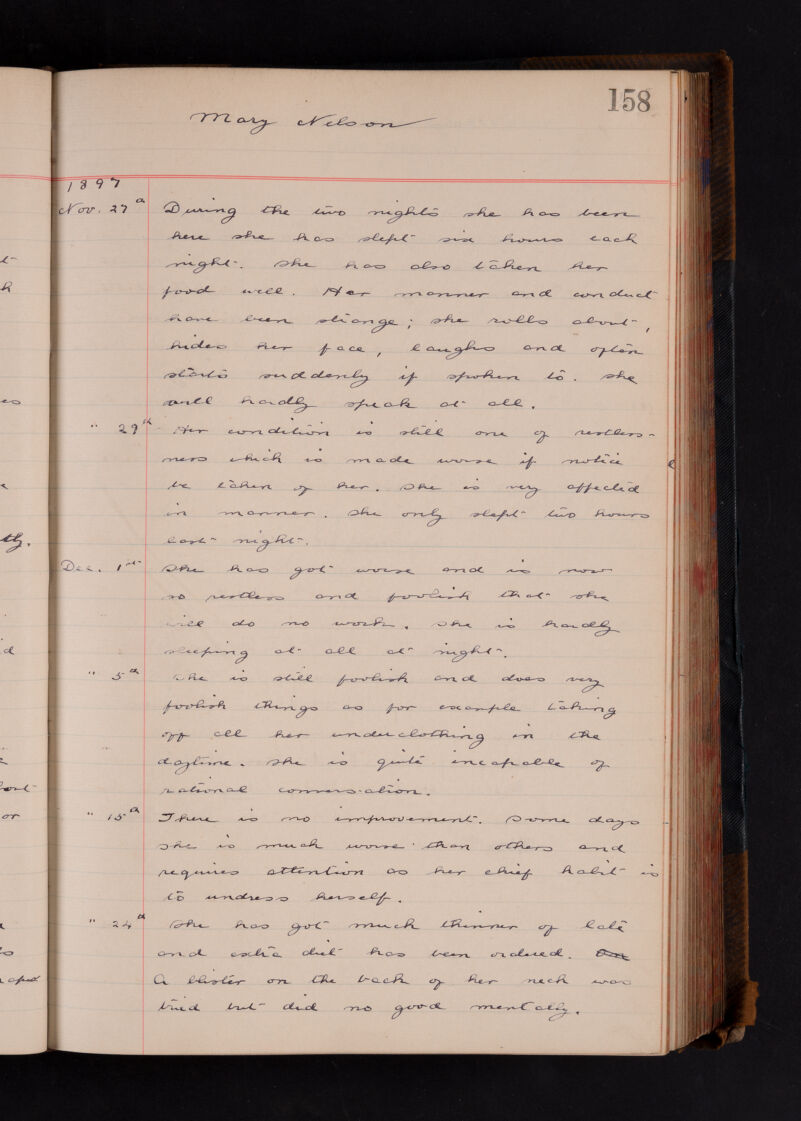 158
Mary Nelson
1897
Nov. 27th During the two nights she has been
here she has slept six hours each
night. She has also taken her
food well. Her manner and conduct
have been strange; she rolls about,
hides her face, laughs and often
starts suddenly if spoken to. She
will hardly speak at all.
" 29th Her condition is still one of restless-
ness which is made worse if notice
be taken of her. She is very affected
in manner. She only slept two hours
last night.
Dec. 1st She has got worse and is now
so restless and foolish that she
will do no work. She is hardly
sleeping at all at night.
" 5th She is still foolish and does very
foolish things as for example taking
off all her underclothing in the
daytime. She is quite incapable of
rational conversation.
" 15th There is no improvement. Some days
she is much worse than others and
requires attention as her chief habit is
to undress herself.
" 24th She has got much thinner of late
and extra diet has been ordered.
A blister on the back of her neck was
tried but did no good mentally.